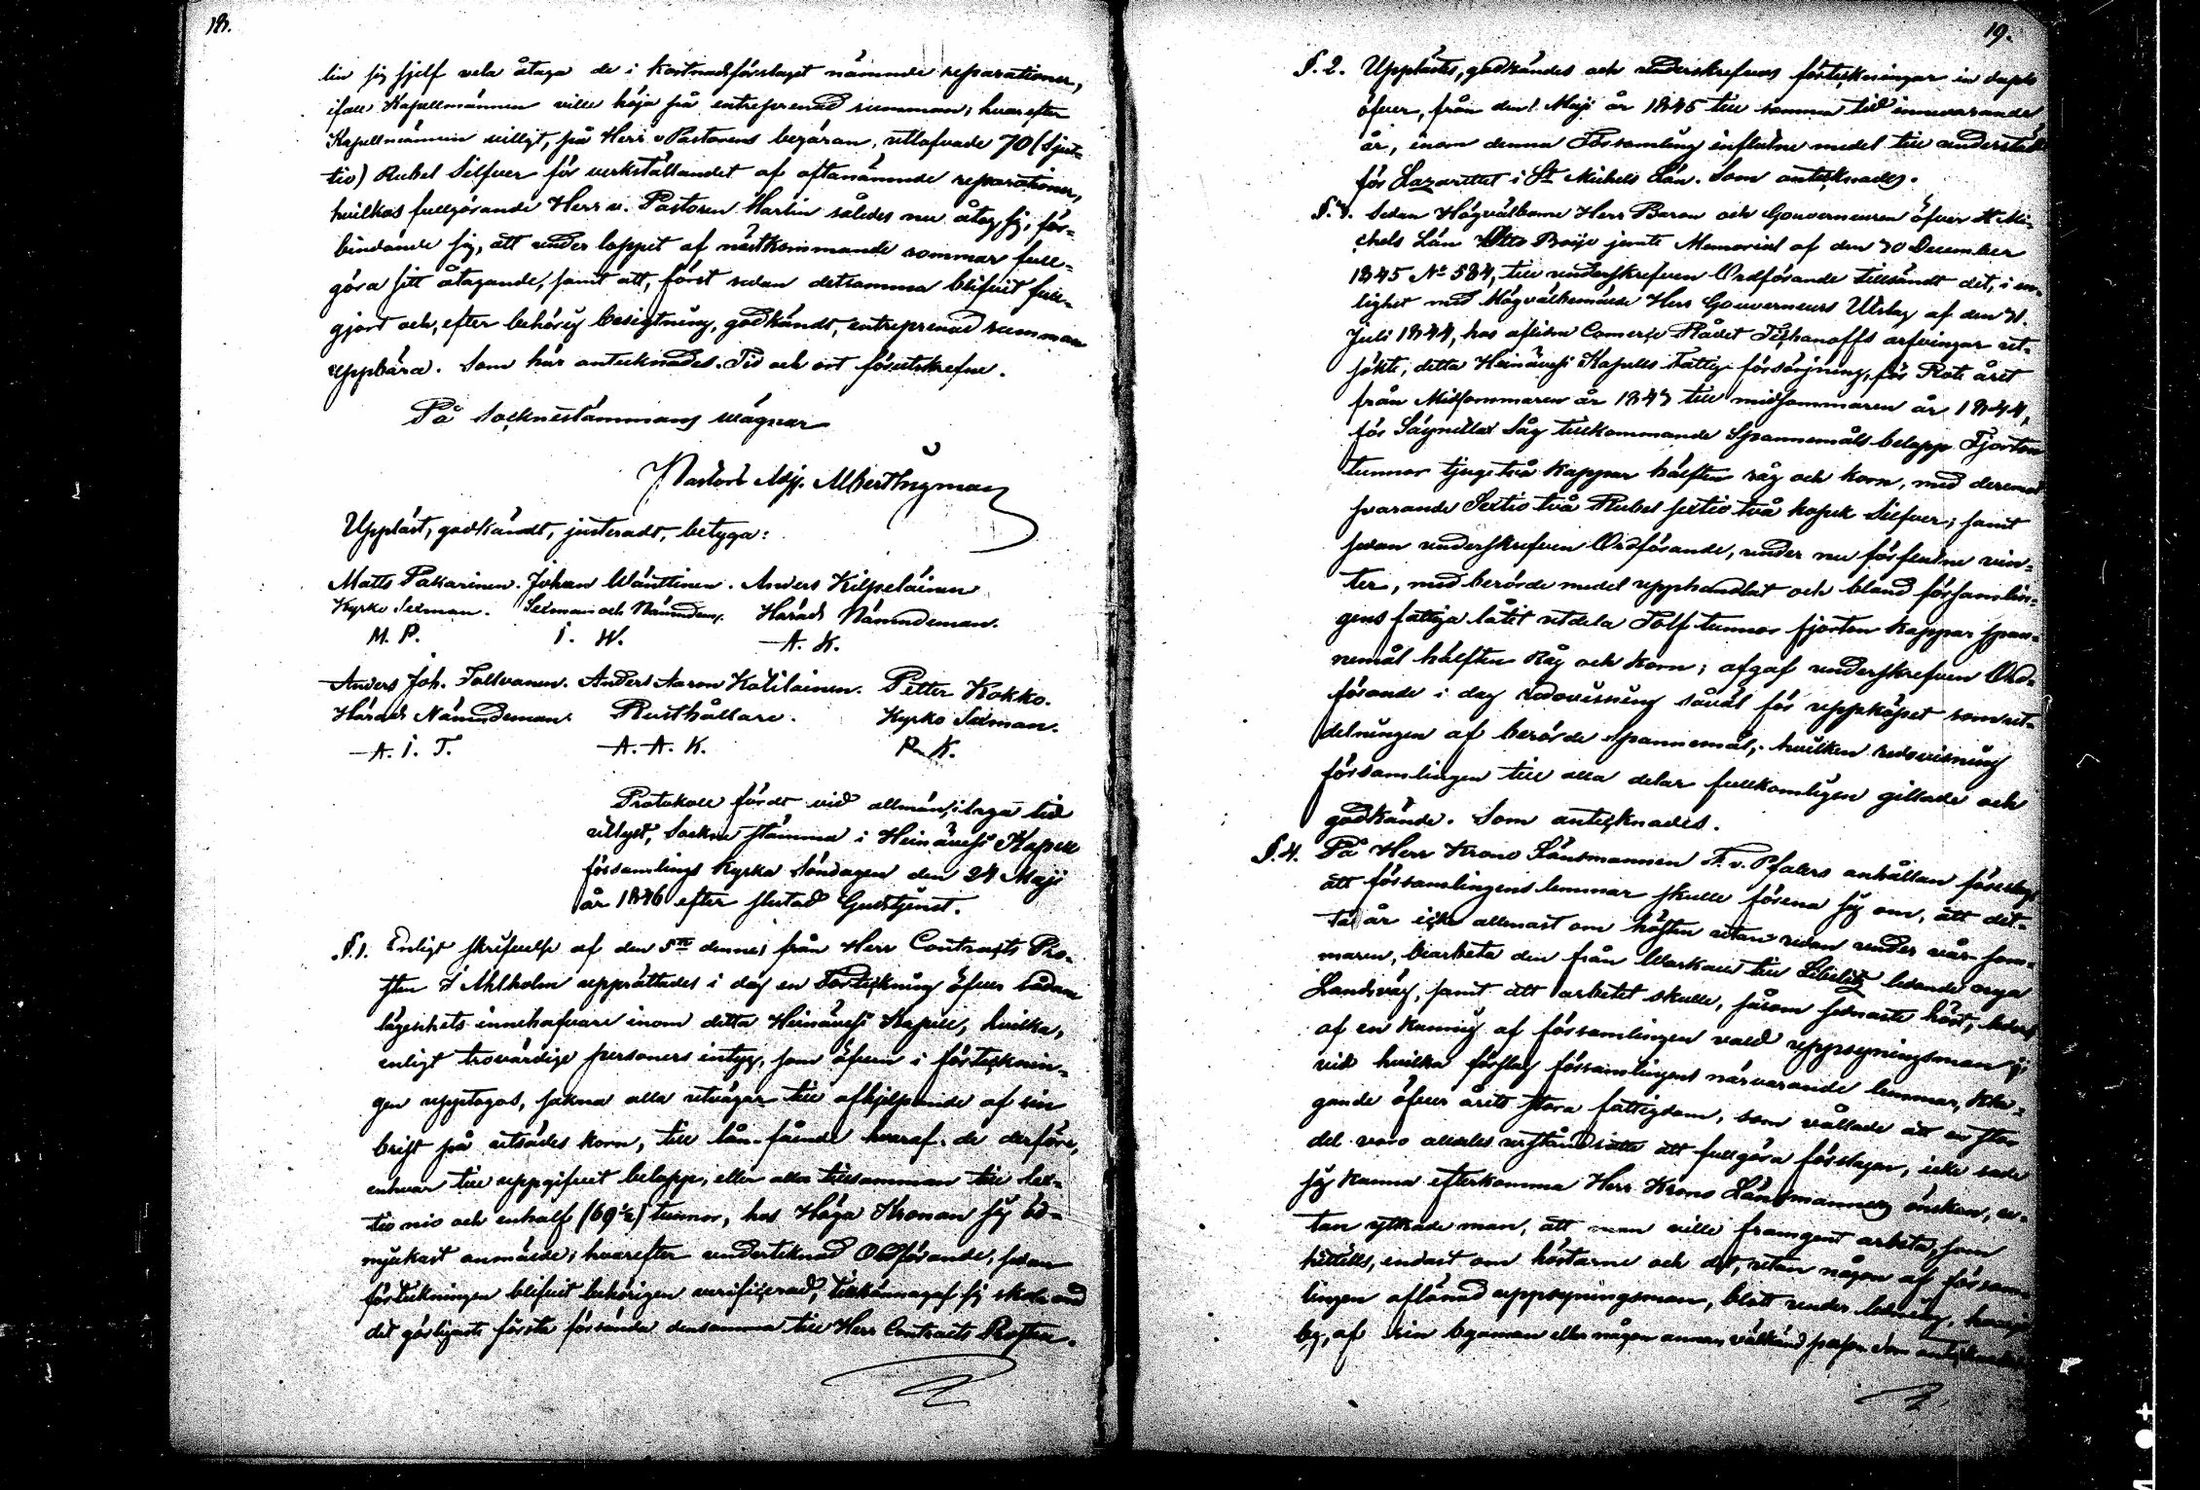 18.
lin sig sjelf vela åtaga de i kostnadsförslaget nämnde reparationer,
ifall Kapellmännen ville höja på entreprenad summan; hvarefter
Kapellmännen villigt, på Herr v. Pastorens begäran, utlofvade 70 (Sjut-
tio) Rubel Silfver för verkställandet af oftanämnde reparationer,
hvilkas fullgörande Herr v. Pastoren Martin således nu åtog sig, för-
bindande sig, att under loppet af nästkommande sommar full-
göra sitt åtagande, samt att, först sedan detsamma blifvit full-
gjort och, efter behörig besigtning, godkändt, entreprenad summan
uppbära. Som här antecknades. Tid och ort förutskrefne.
På Socknestämmans vägnar
Pastors Adj. Albert Ingman
Uppläst, godkändt, justeradt, betyga:
Matts Pakarinen. Johan Wänttinen. Anders Kilpeläinen
Kyrko Sexman. Sexman och Nämndem. Härads Nämndeman.
M. P. I. W. A. K.
Anders Joh. Tallvanen. Anders Aaron Katilainen. Petter Kokko.
Härads Nämndeman. Rusthållare. Kyrko Sexman.
A. I. T. A. A. K. P. K.
Protokoll fördt vid allmän, i laga tid
utlyst, Sockne stämma i Heinävesi Kapell
församlings Kyrka Söndagen den 24 Maji
år 1846 efter slutad Gudstjenst.
§.1. Enligt skrifvelse af den 5te dennes från Herr Contracts Pro-
sten Ahlholm upprättades i dag en Förteckning öfver sådane
lägenhets innehafvare inom detta Heinävesi Kapell, hvilka,
enligt trovärdige personers intyg, som äfven i förtecknin-
gen upptogos, sakna alla utvägar till afhjelpande af sin
brist på utsädes korn, till lån-fående hvaraf de derföre,
enhvar till uppgifvet belopp, eller alla tillsamman till Sex-
tio nio och enhalf (69 1/2) tunnor, hos Höga Kronan sig öd-
mjukast anmälde; hvarefter undertecknad Ordförande, sedan
förteckningen blifvit behörigen verificerad, tillkännagaf sig skola med
det görligaste första försända densamma till Herr Contracts Prosten.
19.
§.2. Upplästes, godkändes och underskrefvos förteckningar in duplo
öfver, från den 1 Maji år 1845 till samma tid innevarande
år, inom denna Församling influtne medel till understöd
för Lazarettet i St Michels Län. Som antecknades.
§.3. Sedan Högvälborne Herr Baron och Gouverneuren öfver St Mi-
chels Län Otto Boije jemte Memorial af den 30 December
1845 No 584, till underskrefven Ordförande tillsändt det, i en-
lighet med Högvälbemälde Herr Gouverneurs Utslag af den 31.
Juli 1844, hos aflidne Comerce Rådet Tichanoffs arfvingar ut-
sökte, detta Heinävesi Kapells Fattig försörjning, för Rote året
från Midsommaren år 1843 till midsommaren år 1844,
för Säynellex Såg tillkommande Spannemåls belopp Fjorton
tunnor tjugetvå kappar hälften råg och korn, med deremot
svarande Sextio två Rubel sextio två kopek Silfver; samt
sedan underskrefven Ordförande, under nu förflutne vin-
ter, med berörde medel upphandlat och bland församlin-
gens fattiga låtit utdela Tolf tunnor fjorton kappar span-
nemål hälften råg och korn; afgaf underskrefven Ord-
förande i dag redovisning såväl för uppköpet som ut-
delningen af berörde spannemål, hvilken redovisning
församlingen till alla delar fullkomligen gillade och
godkände. Som antecknades.
§.4. På Herr Krono Länsmannen F. v. Pfalers anhållan föreslogs
att församlingens lemmar skulle förena sig om, att det-
ta år icke allenast om hösten utan redan under vår-som-
maren, bearbeta den från Warkaus till Libelitz ledande nya
Landsväg, samt att arbetet skulle, såsom sednaste höst, ledas
af en kunnig af församlingen vald uppsyningsman;
vid hvilka förslag församlingens närvarande lemmar, kla-
gande öfver årets stora fattigdom, som vållade att en stor
del voro alldeles urståndsatte att fullgöra förslagen, icke sade
sig kunna efterkomma Herr Krono Länsmannens önskan, u-
tan yttrade man, att man ville framgent arbeta, som
hittills, endast om höstarne och det, utan någon af försam-
lingen aflönad uppsyningsman, blott under ledning,
by, af sin byaman eller någon annan välkänd person. Som antecknades.